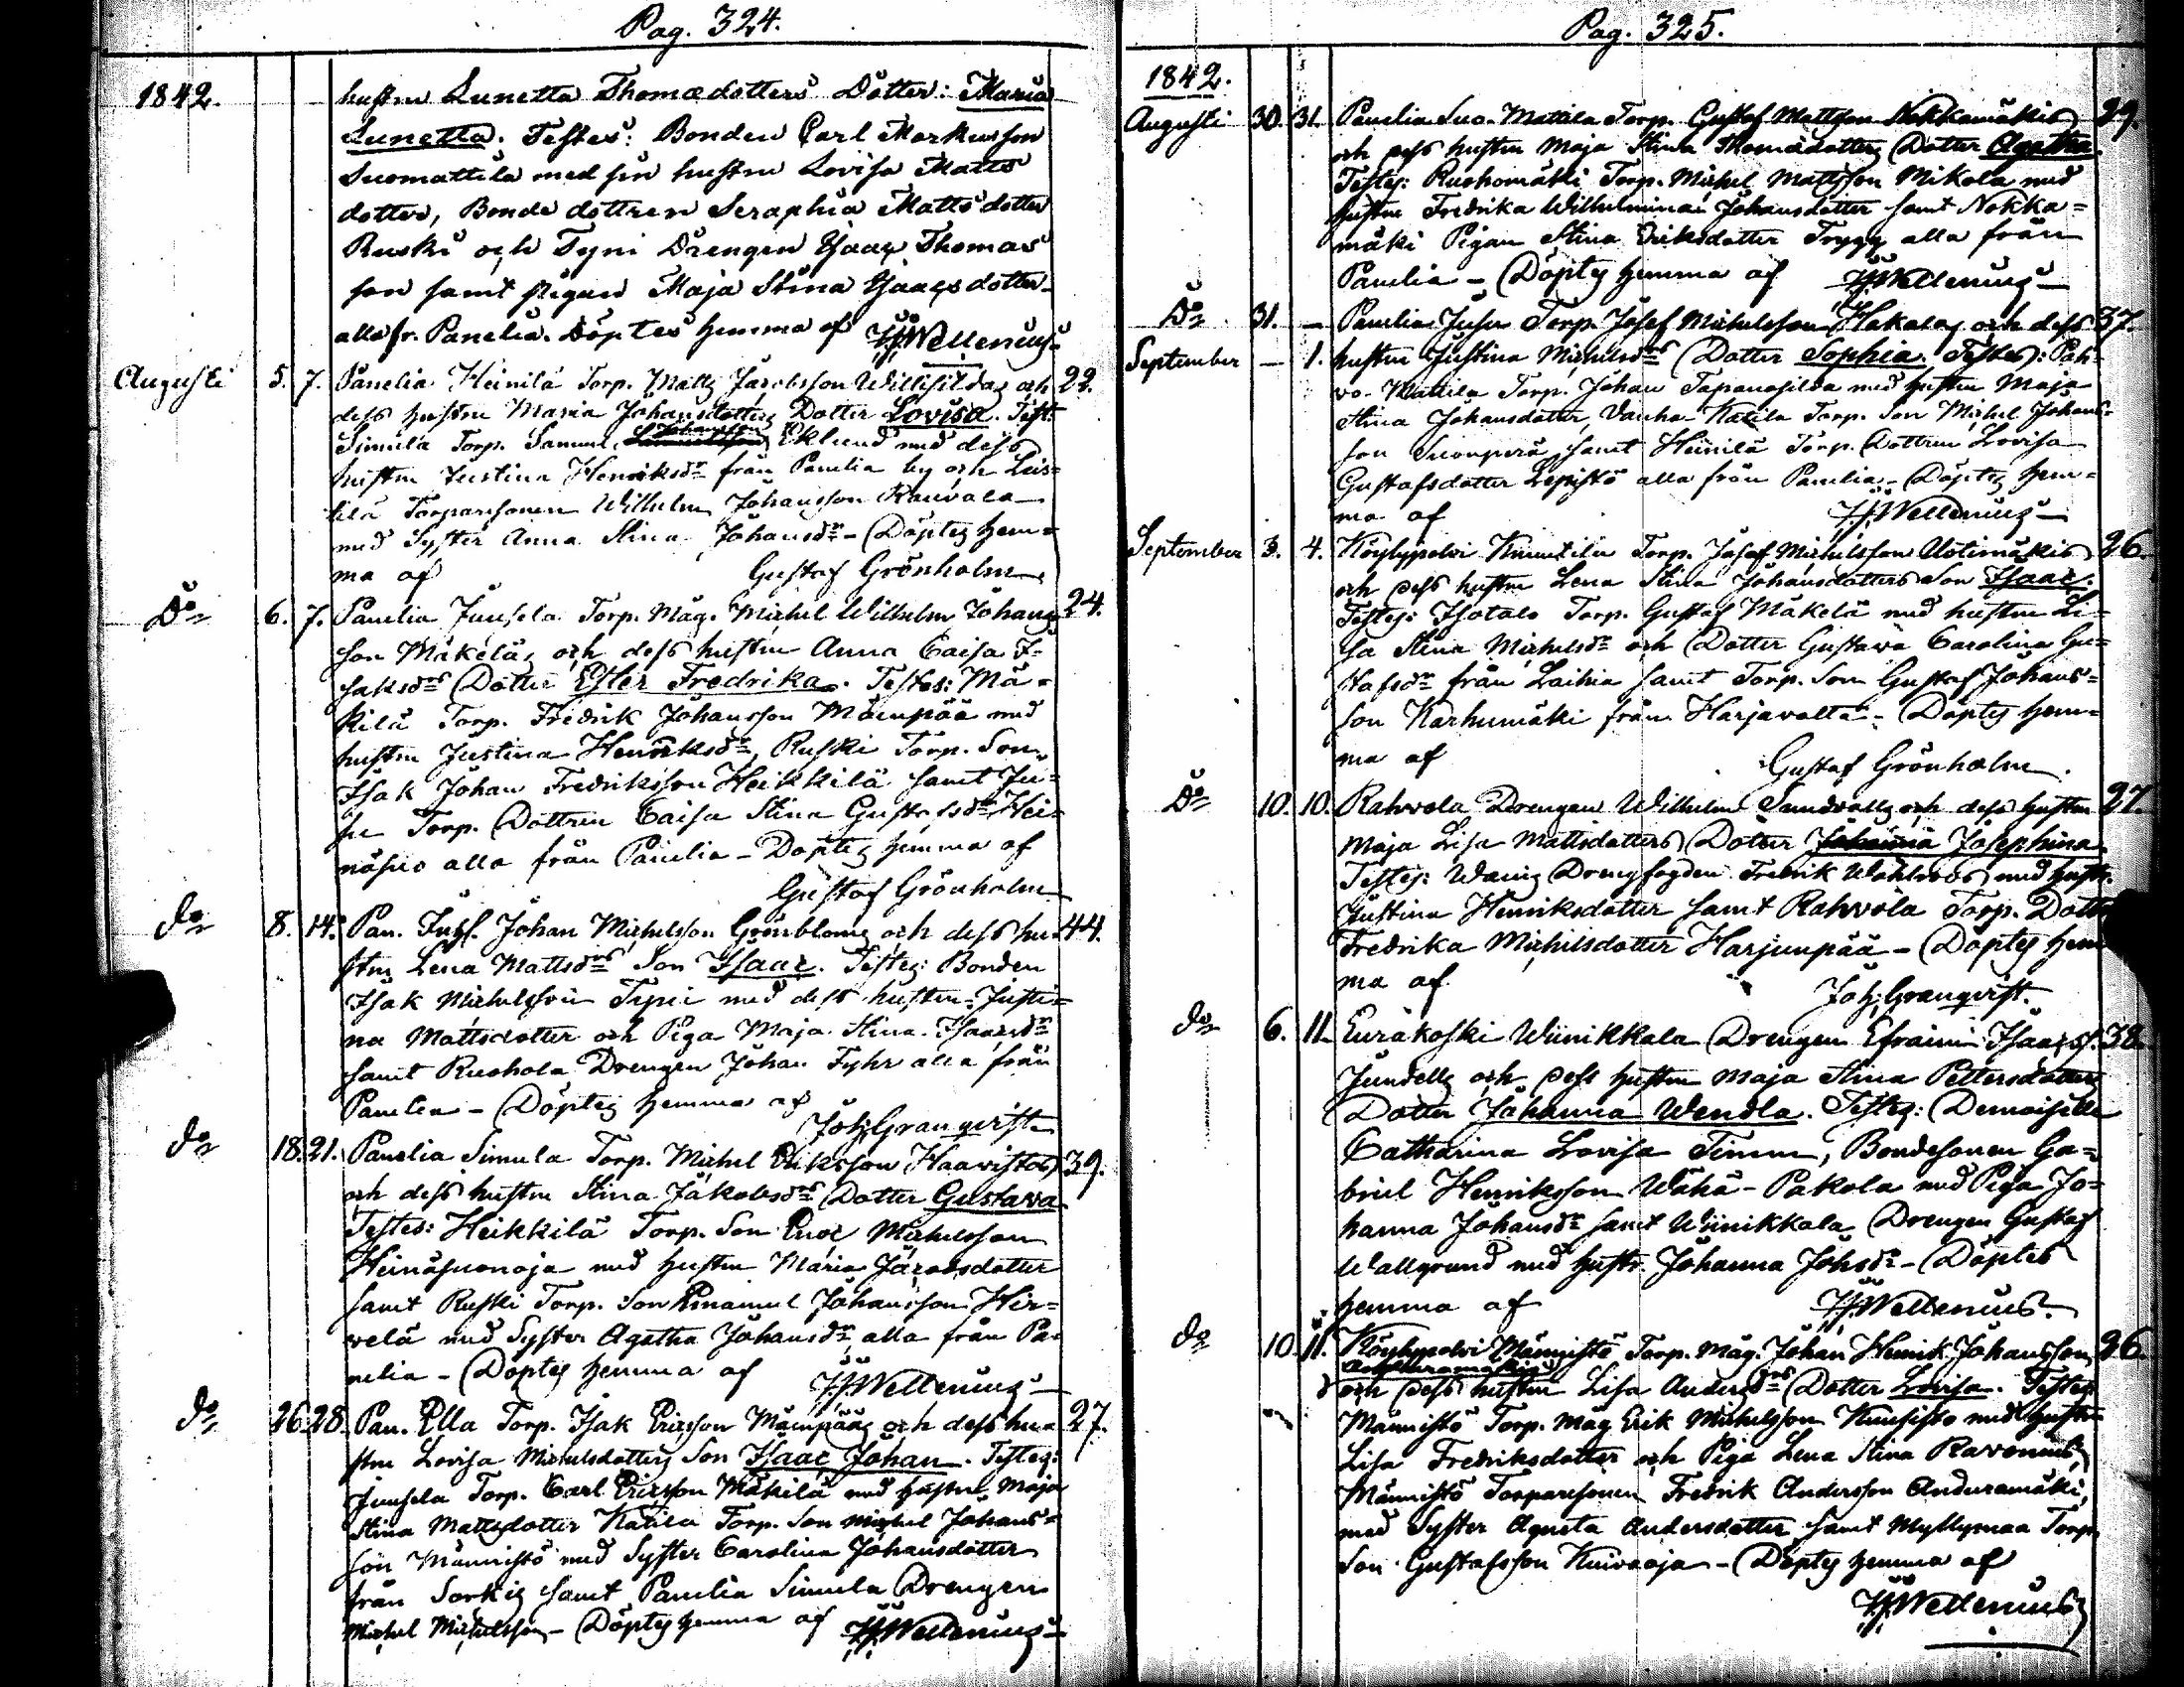 Pag. 324.
1842. hustru Lunetta Thomædotters Dotter: Maria
Lunetta. Testes: Bonden Carl Markusson
Suomattila med sin hustru Lovisa Matts
dotter, Bonde dottren Seraphia Matts dotter
Ruski och Tyni Drengen Isaac Thomas
son samt pigan Maja Stina Isaacs dotter
alla fr. Panelia. Döptes hemma af HWellenius
Augusti 5. 7. Panelia Heinilä Torp. Matts Jacobsson Willisildas och 22.
dess hustru Maria Johansdotters Dotter Lovisa. Test:
Simula Torp. Samuel Johansson Eklund med dess
hustru Justina Henriksdr från Panelia by och Leis-
tilä Torparesonen Wilhelm Johansson Rauvala
med Syster Anna Stina Johansdr - Döptes hem-
ma af Gustaf Grönholm
Do 6. 7. Panelia Juusela Torp. Måg. Michel Wilhelm Johans 24.
son Mäkelä och dess hustru Anna Caisa I-
saksdrs Dotter Ester Fredrika. Testes: Mä-
kilä Torp. Fredrik Johansson Mäenpää med
hustru Justina Henriksdr, Ruski Torp. Son
Isak Johan Fredriksson Heikkilä samt Ju-
se Torp. Dottren Caisa Stina Gustafsdr Hei-
näsuo alla från Panelia - Döptes hemma af
Gustaf Grönholm
do 8. 14. Pan. Inhs. Johan Michelsson Grönbloms och dess hu- 44.
stru Lena Mattsdrs Son Isaac. Testes: Bonden
Isak Michelsson Tyni med dess hustru Justi-
na Mattsdotter och Piga Maja Stina Isaacsdr
samt Ruohola Drengen Johan Fyhr alla från
Panelia - Döptes hemma af
Joh. Granqvist
do 18. 21. Panelia Simula Torp. Michel Eriksson Haavistos 39.
och dess hustru Stina Jakobsdrs Dotter Gustava
Testes: Heikkilä Torp. Son Eric Michelsson
Heinäsuonoja med hustru Maria Jacobsdotter
samt Ruski Torp. Son Emanuel Johansson Hir-
velä med Syster Agatha Johansdr alla från Pa-
nelia - Döptes hemma af HWellenius
do 26. 28. Pan. Ella Torp. Isak Ericsson Mäenpääs och dess hu- 27.
stru Lovisa Michelsdotters Son Isaac Johan. Testes:
Juusela Torp. Carl Ericsson Mäkilä med hustru Maja
Stina Mattsdotter Katila Torp. Son Michel Johans-
son Männistö med Syster Carolina Johansdotter
från Sorkis samt Panelia Simula Drengen
Michel Michelsson - Döptes hemma af HWellenius
Pag. 325.
1842.
Augusti 30. 31. Panelia Suo-Mattila Torp. Gustaf Mattsson Nokkamäkis 29.
och dess hustru Maja Stina Thomædotters Dotter Agatha.
Testes: Ruohomäki Torp. Michel Mattsson Mikola med
hustru Fredrika Wilhelmina Johansdotter samt Nokka-
mäki Pigan Stina Eriksdotter Trygg alla från
Panelia - Döptes hemma af HWellenius
Do 31. - Panelia Juse Torp. Josef Michelsson Hakalas och dess 37.
September - 1. hustru Justina Michelsdrs Dotter Sophia. Testes: Pah-
vo-Mattila Torp. Johan Tapanasilda med hustru Maja
Stina Johansdotter, Vanha-Katila Torp. Son Michel Johans-
son Suonperä, samt Heinilä Torp. Dottren Lovisa
Gustafsdotter Lepistö alla från Panelia - Döptes hem-
ma af HWellenius
September 3. 4. Köylypolvi Knuutila Torp. Josef Michelsson Uotimäkis 26.
och dess hustru Lena Stina Johansdotters Son Isaac.
Testes: Isotalo Torp. Gustaf Mäkelä med hustru Li-
sa Stina Michelsdr och Dotter Gustava Carolina Gu-
stafsdr från Laihia samt Torp. Son Gustaf Johans-
son Karhumäki från Harjavalta - Döptes hem-
ma af
Gustaf Grönholm
Do 10. 10. Rahvola Drengen Wilhelm Sundvalls och dess hustru 27.
Maja Lisa Mattsdotters Dotter Johanna Josephina
Testes: Drengfogden Fredrik Wahlroos med hustr.
Justina Henriksdotter samt Rahvola Torp. Dott
Fredrika Michelsdotter Harjunpää - Döptes hem
ma af
Joh. Granqvist.
do 6. 11. Euräkoski Wiinikkala Drengen Efraim Isaacss. 38.
Jundells och dess hustru Maja Stina Pettersdotters
Dotter Johanna Wendla. Testes: Demoiselle
Catharina Lovisa Timm, Bondesonen Ga-
briel Henriksson Wähä-Pakola med Piga Jo-
hanna Johansdr samt Wiinikkala Drengen Gustaf
Wallgrund med hustr. Johanna Johsdr - Döptes
hemma af HWellenius.
do 10. 11. Köylypolvi Männistö Torp. Måg. Johan Henrik Johansson 26.
och dess hustru Lisa Andersdrs Dotter Lovisa. Testes
Männistö Torp. Måg Erik Michelsson Kuusisto med hustru
Lisa Fredriksdotter och Piga Lena Stina Ravenius,
Männistö Torparesonen Fredrik Andersson Anduramäki,
med Syster Agneta Andersdotter samt Myllymaa Torp.
Son Gustafsson Kuivaoja - Döptes hemma af
HWellenius